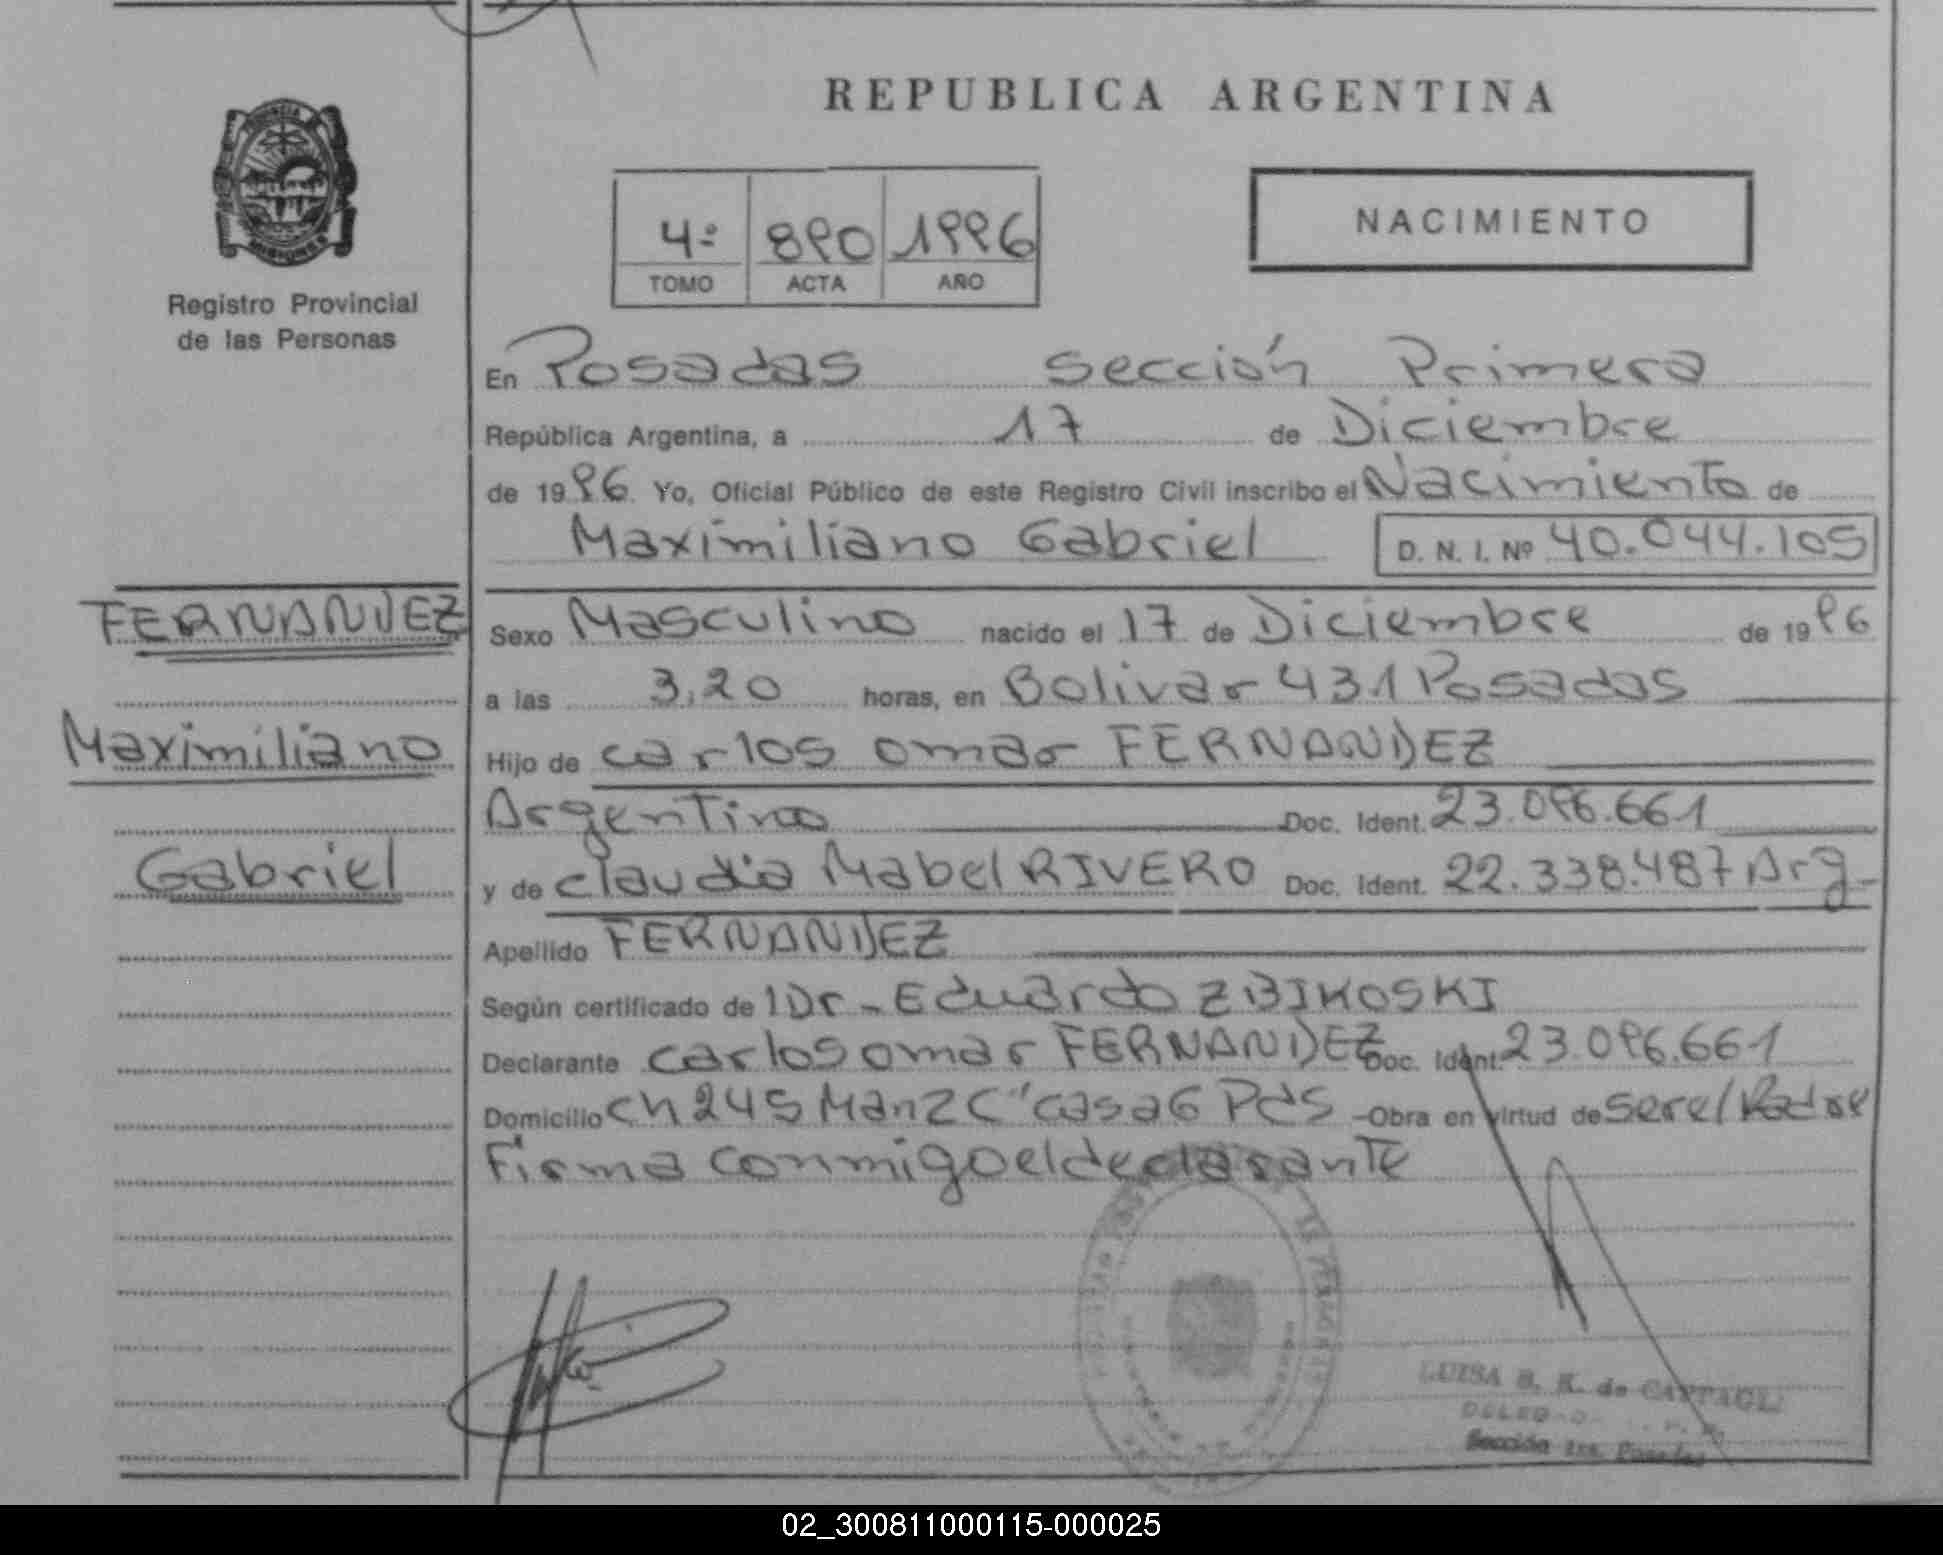 REPUBLICA ARGENTINA
4º 890 1996
TOMO ACTA AÑO
NACIMIENTO
Registro Provincial
de las Personas
En Posadas sección Primera
República Argentina, a 17 de Diciembre
de 1996. Yo, Oficial Público de este Registro Civil inscribo el Nacimiento de
Maximiliano Gabriel D. N. I. Nº 40.044.105
FERNANDEZ
Maximiliano
Gabriel
Sexo Masculino nacido el 17 de Diciembre de 1996
a las 3,20 horas, en Bolivar 431 Posadas
Hijo de carlos omar FERNANDEZ
Argentino Doc. Ident. 23.096.661
y de claudia Mabel RIVERO Doc. Ident. 22.338.487 Arg-
Apellido FERNANDEZ
Según certificado de Dr- Eduardo ZBIKOSKI
Declarante carlos omar FERNANDEZ Doc. Ident. 23.096.661
Domicilio Ch 245 Manz C" casa 6 Pds -Obra en virtud de ser el Padre
Firma conmigo el declarante
LUISA B. K. de
Sección 1ra. Posadas
02_300811000115-000025